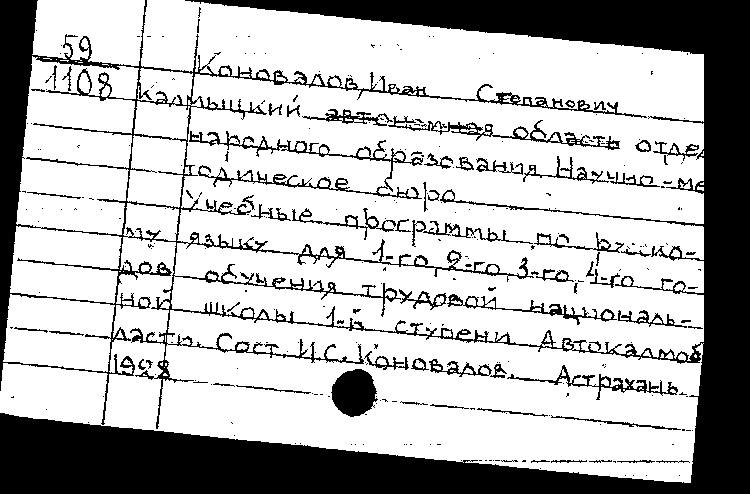 59
1108
Коновалов, Иван Степанович
Калмыцкий автономная область отдел
народного образования Научно-ме
тодическое бюро
Учебные программы по русско-
му языку для 1-го, 2-го, 3-го, 4-го го-
дов обучения трудовой националь-
ной школы 1-й ступени Автокалмоб
ласти. Сост. И.С. Коновалов. Астрахань
1928